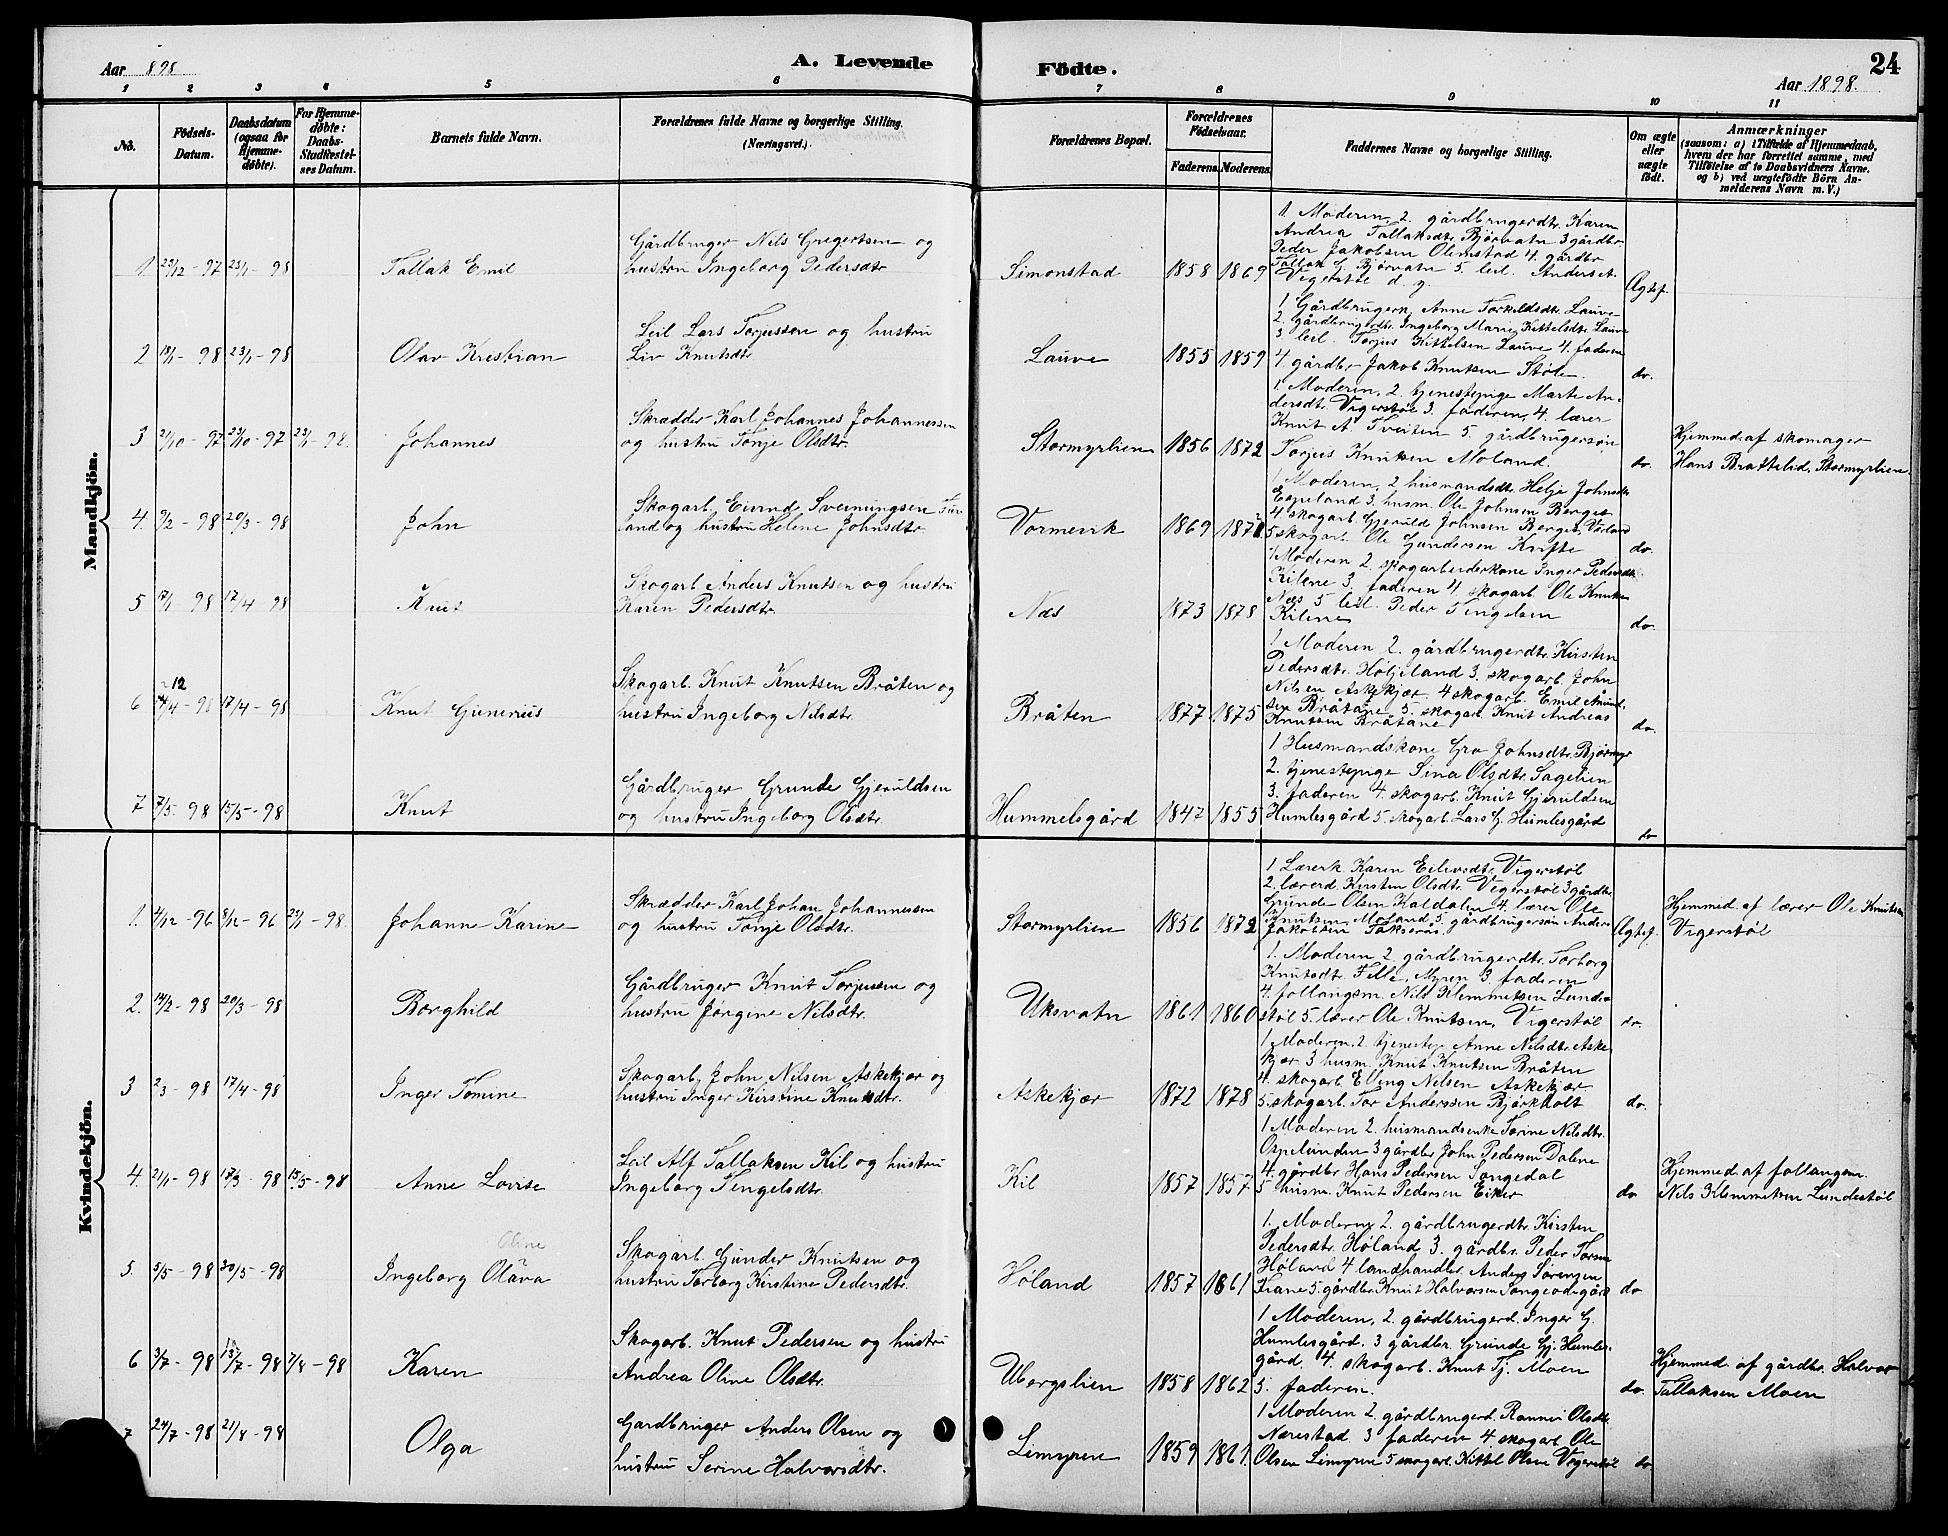 Aar 898
A. Levende
Födte.
24
Aar 1898.
1 2 3 4 5 6 7 8 9 10 11
No.
Födsels-
Datum.
Daabsdatum
(ogsaa for
Hjemme-
döbte).
For Hjemme-
döbte:
Daabs-
Stadfæstel-
ses Datum.
Barnets fulde Navn.
Forældrenes fulde Navne og borgerlige Stilling.
(Næringsvei.)
Forældrenes Bopæl.
Forældrenes
Födselsaar.
Faderens. Moderens.
Faddernes Navne og borgerlige Stilling.
Om ægte
eller
uægte
födt.
Anmærkninger
(saasom: a) i Tilfælde af Hjemmedaab,
hvem der har forrettet samme, med
Tilföielse af to Daabsvidners Navne.
og b) ved uægtefödte Börn An-
melderens Navn m. V.)
Mandkjön.
1 29/12-97 23/1-98
Tallak Emil
Gårdbruger Nils Gregertsen og
hustru Ingeborg Pedersdtr
Simonstad
1858 1869
1. Moderen, 2. gårdbrugerdtr. Karen
Andrea Tallaksdtr Bjørvatn 3 gårdbr
Peder Jakobsen Olimstad 4. gårdbr
Tallak Bjørvatn 5. leil. Anders A.
Vigerstøl d. y.
Ægtef.
2 18/1-98 23/1-98
Olav Kristian
Leil Lars Torjussen og hustru
Liv Knutsdtr
Lauve
1855 1859
1 Gårdbrugerk. Anne Torkeldsdtr Lauve
2. gårdbrugerdtr. Ingeborg Marie Kittelsdtr Lauve
3 leil. Torjus Kittelsen Lauve 4. faderen
4 gårdbr Jakob Knutsen Støle.
do.
3 21/10-97 23/10-97 23/1-98.
Johannes
Skrædder Karl Johannes Johannessen
og hustru Tonje Olsdtr.
Stormyrlien
1856 1872
1. Moderen, 2. tjenestepige Marte An-
dersdtr. Vigerstøl 3. faderen, 4. lærer
Knut A. Tveiten 5. gårdbrugersøn
Torjus Knutsen Moland.
do.
Hjemmed. af skomager
Hans Brattelid, Stormyrlien
4. 9/2-98 20/3-98
John
Skogarb. Eivind Sveinungsen
land og hustru Helene Johnsdtr.
Vormevik
1869
1 Moderen, 2 husmandsdtr. Helje Johnsdtr
Espeland 3. husm. Ole Johnsen Berget
4 skogarb. Gjeruld Johnsen Berget,
5 skogarb. Ole Gundersen Knifte
do.
5 17/1 98 17/4 98
Knut
Skogarb Anders Knutsen og hustru
Karen Pedersdtr.
Næs
1873 1878
1 Moderen 2 skogarbeiderkone Inger Pedersdtr
Kilene 3. faderen 4 skogarb Ole Knutsen
Næs 5 leil. Peder Tingelsen
Kilene
do.
6 12 14/4-98 17/4-98
Knut
Skogarb. Knut Knutsen Bråten og
hustru Ingeborg Nilsdtr.
Bråten
1877 1875
1 Moderen 2. gårdbrugerdtr. Kirsten
Pedersdtr. Høljeland 3. skogarb. John
Nilsen Askekjær 4 skogarb. Emil
sen Bråtane 5. skogarb Knut Andreas
Knutsen Bråtane
do.
7 7/5. 98 15/5-98
Knut
Gårdbruger Grunde Gjeruldsen
og hustru Ingeborg Olsdtr.
Hummelsgård
1847 1855
1 Husmandskone Gro Johnsdtr. Bjørmyr
2. tjenestepige Sina Olsdtr. Sagelien
3. faderen 4. skogarb. Knut Gjeruldsen
Humlesgård 5. skogarb. Lars G. Humlesgård
do
Kvindekjön.
1. 4/12-96 8/12-96 23/1-98.
Johanne Karine
Skrædder Karl Johan Johannessen
og hustru Tonje Olsdtr.
Stormyrlien
1856 1872
1 Lærerk Karen Eilevsdtr. Vigerstøl
2. lærerd. Kirsten Olsdtr. Vigerstøl 3 gårdbr
Grunde Olsen Kaldalen 4. lærer Ole
Knutsen Moland 5. gårdbrugersøn Anders
Jakobsen
Ægtef.
Hjemmed af lærer Ole Knutsen
Vigerstøl
2. 14/2-98 20/3-98
Borghild
Gårdbruger Knut Torjussen og
hustru Jørgine Nilsdtr.
Uksvatn
1861 1860
1. Moderen 2. gårdbrugerdtr. Torborg
Knutsdtr. Felle, Myren 3. faderen
4. follaugsm. Nils Klemmetsen Lunde-
støl 5. lærer Ole Knutsen, Vigerstøl
do.
3 2/3-98 17/4-98
Inger Tomine
Skogarb. John Nilsen Askekjær og
hustru Inger Kirstine Knutsdtr.
Askekjær
1872 1878
1 Moderen, 2 tjenestep. Anne Nilsdtr. Aske-
kjær 3 husm. Knut Knutsen Bråten
4. skogarb Elling Nilsen Askekjær
5. skogarb. Tor Anderssen Bjørkholt
do.
4. 21/1-98 17/3-98 15/5-98
Anne Lovise
Leil Alf Tallaksen Kil og hustru
Ingeborg Tengelsdtr.
Kil
1857 1857
1 Moderen 2. husmandsenke Torine Nilsdtr.
Ospelunden 3 gårdbr John Pedersen Dalene
4. gårdbr Hans Pedersen Songedal
5 husm. Knut Pedersen Eiker
do
Hjemmed af follaugsm.
Nils Klemmetsen Lundestøl
5. 5/5-98 30/5-98
Oline
Ingeborg Olava
Skogarb. Gunder Knutsen og
hustru Torborg Kirstine Pedersdtr.
Høland
1857 1861
1. Moderen 2. gårdbrugerdtr. Kirsten
Pedersdtr. Høland 3. gårdbr. Peder
Høland 4 landhandler Anders Sørensen
Krane 5. gårdbr. Knut Halvorsen Songeødegård
do
6 3/7-98 13/7-98 7/8-98
Karen
Skogarb. Knut Pedersen og hustru
Andrea Oline Olsdtr.
Ubergslien
1858 1862
1 Moderen, 2. gårdbrugerd. Inger G.
Humlesgård. 3 gårdbr. Grunde Gj. Humles-
gård. 4. skogarb. Knut Tj. Moen
5. faderen.
do.
Hjemmed. af gårdbr. Halvor
Tallaksen Moen
7 24/7-98 21/8-98
Olga
Gardbruger Anders Olsen og
hustru Serine Halvorsdtr.
Limyrene
1859 1861
1 Moderen 2. gårdbrugerd. Olsdtr.
Nærestad 3 faderen 4. skogarb. Ole
Olsen Limyrene 5 skogarb. Kittel Olsen Vigerstøl
do